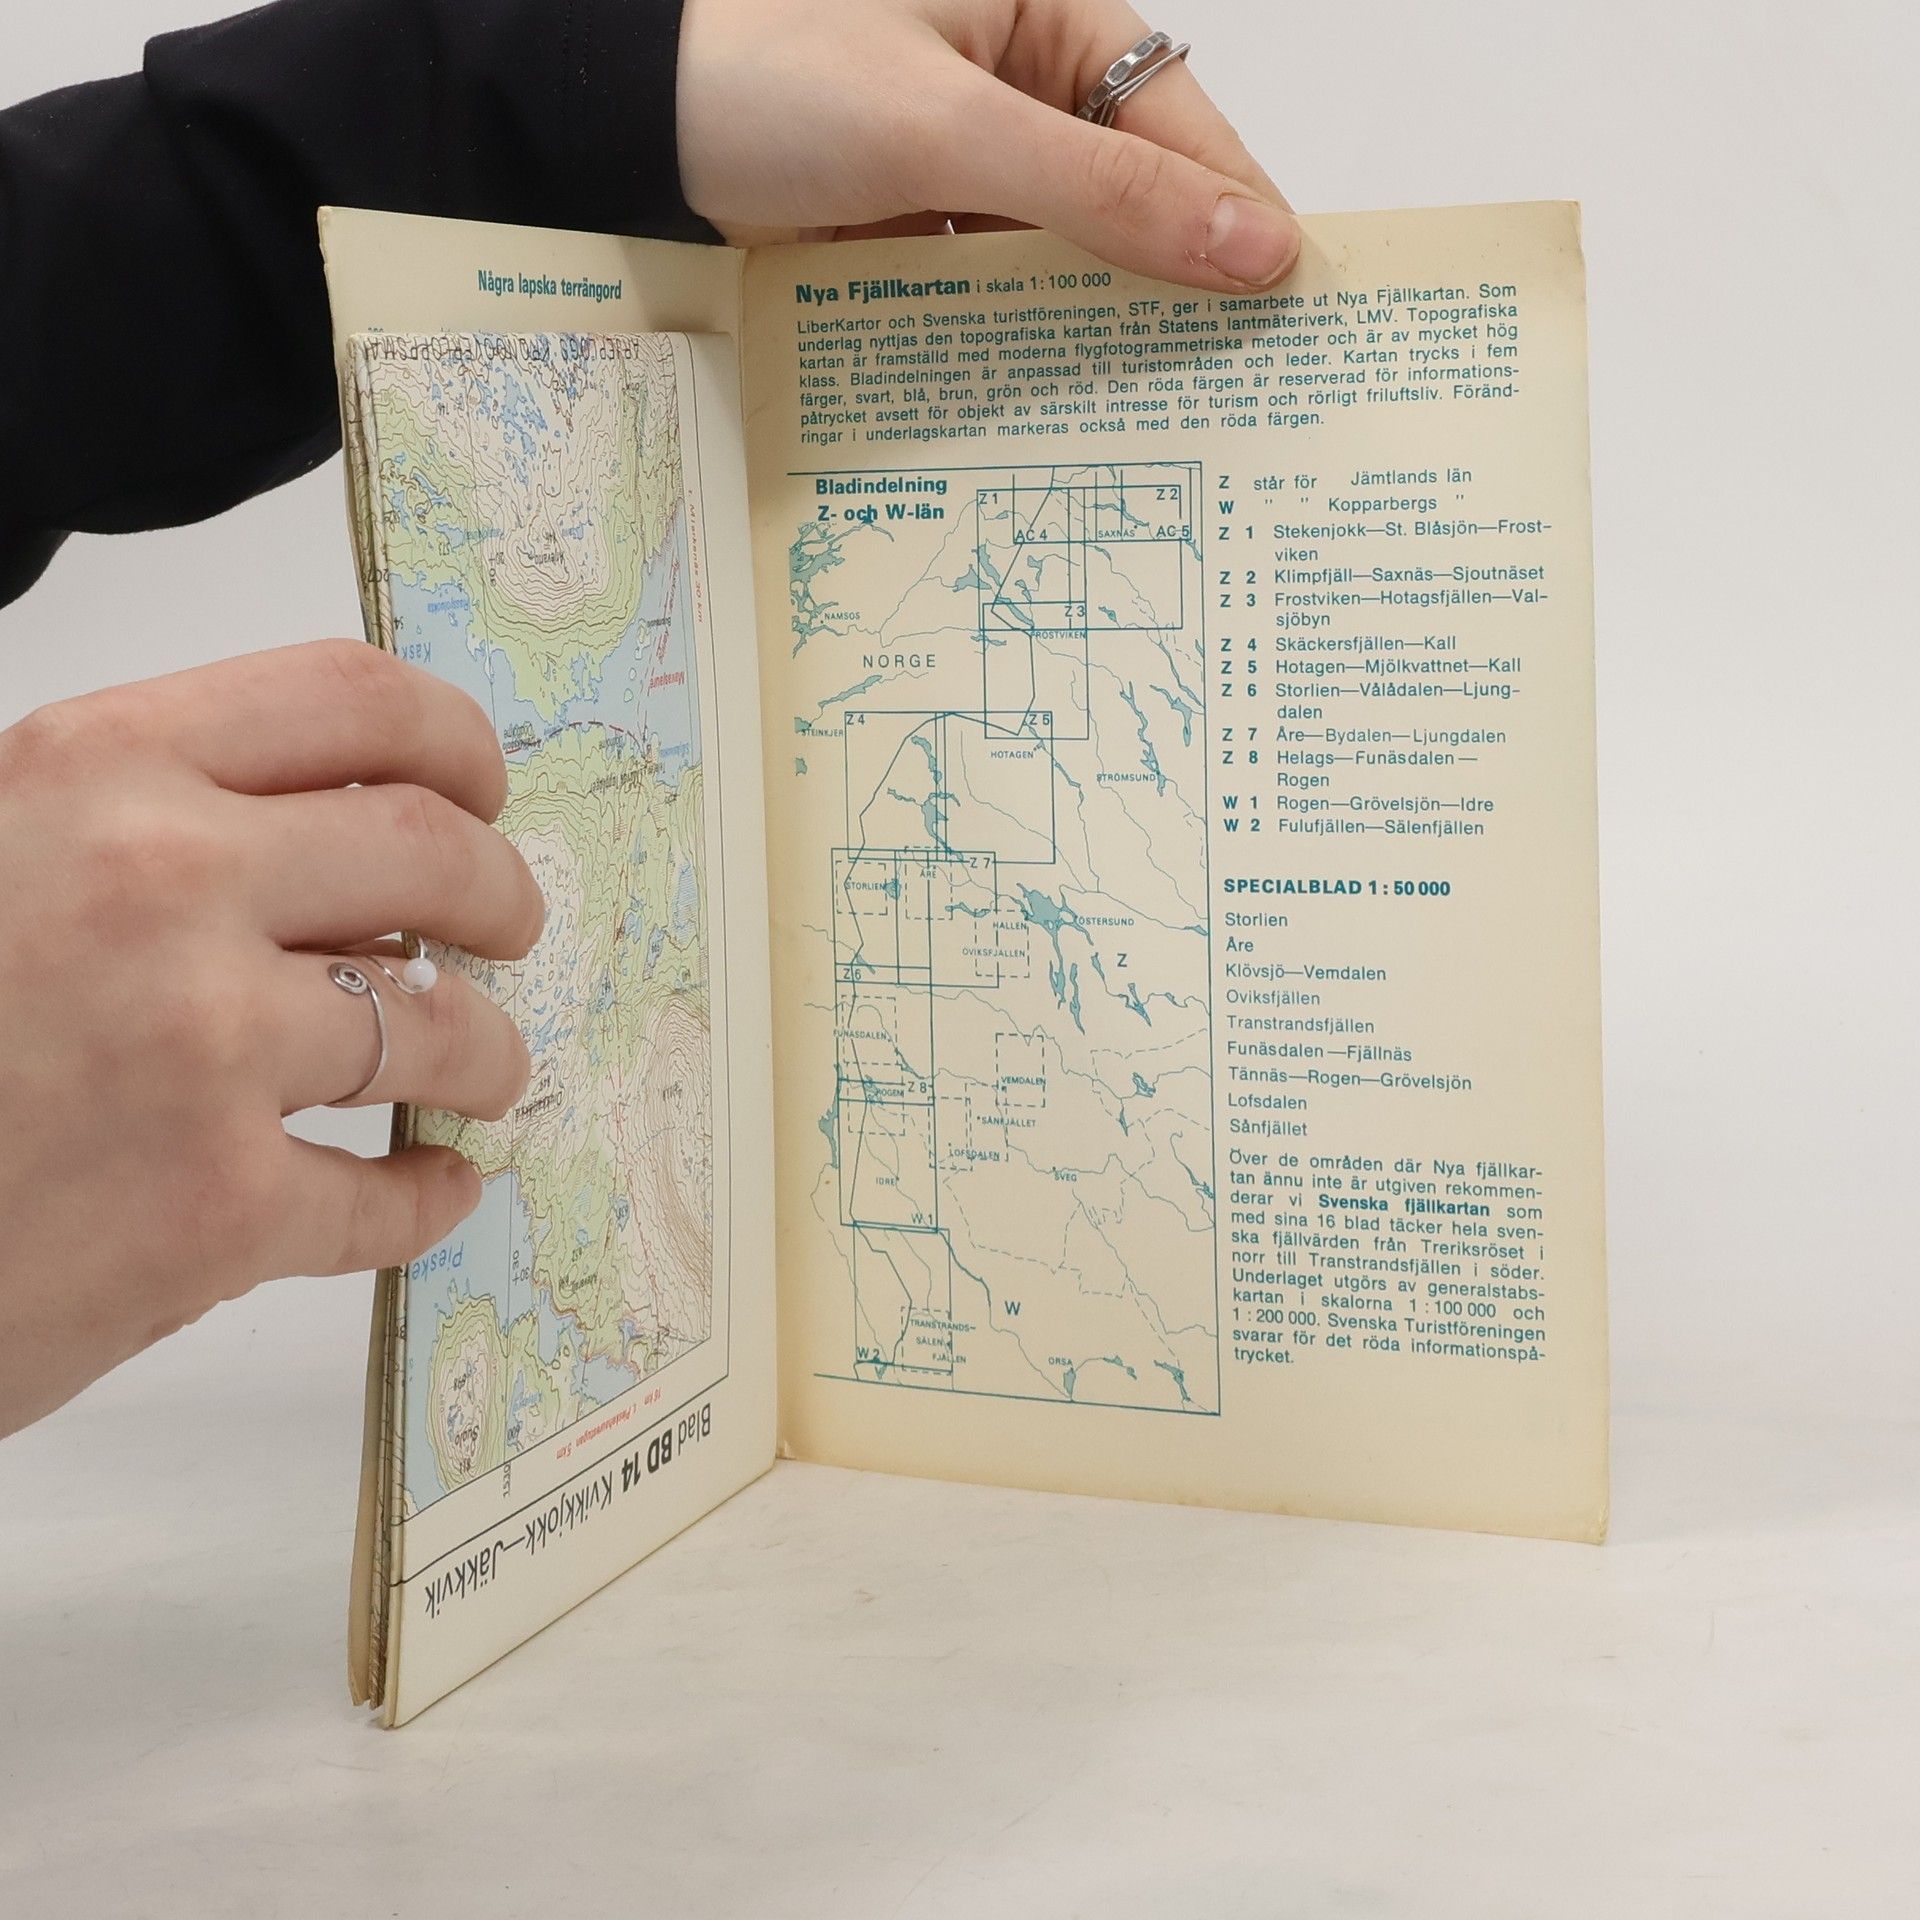 Några lapska terrängord
Kask
Pieske
Blad BD 14 Kvikkjokk—Jäkkvik
Nya Fjällkartan i skala 1:100 000
LiberKartor och Svenska turistföreningen, STF, ger i samarbete ut Nya Fjällkartan. Som
underlag nyttjas den topografiska kartan från Statens lantmäteriverk, LMV. Topografiska
kartan är framställd med moderna flygfotogrammetriska metoder och är av mycket hög
klass. Bladindelningen är anpassad till turistområden och leder. Kartan trycks i fem
färger, svart, blå, brun, grön och röd. Den röda färgen är reserverad för informations-
påtrycket avsett för objekt av särskilt intresse för turism och rörligt friluftsliv. Föränd-
ringar i underlagskartan markeras också med den röda färgen.
Bladindelning
Z- och W-län
Z 1
Z 2
AC 4
SAXNÄS
AC 5
NAMSOS
Z 3
FROSTVIKEN
NORGE
STEINKJER
Z 4
Z 5
HOTAGEN
STRÖMSUND
Z 7
STORLIEN
ÅRE
HALLEN
ÖSTERSUND
OVIKSFJÄLLEN
Z
Z 6
FUNÄSDALEN
VEMDALEN
Z 8
ROGEN
SÅNFJÄLLET
LOFSDALEN
SVEG
IDRE
W 1
W
TRANSTRANDS-
SÄLEN
FJÄLLEN
W 2
ORSA
Z står för Jämtlands län
W " " Kopparbergs "
Z 1 Stekenjokk—St. Blåsjön—Frost-
viken
Z 2 Klimpfjäll—Saxnäs—Sjoutnäset
Z 3 Frostviken—Hotagsfjällen—Val-
sjöbyn
Z 4 Skäckersfjällen—Kall
Z 5 Hotagen—Mjölkvattnet—Kall
Z 6 Storlien—Vålådalen—Ljung-
dalen
Z 7 Åre—Bydalen—Ljungdalen
Z 8 Helags—Funäsdalen—
Rogen
W 1 Rogen—Grövelsjön—Idre
W 2 Fulufjällen—Sälenfjällen
SPECIALBLAD 1:50 000
Storlien
Åre
Klövsjö—Vemdalen
Oviksfjällen
Transtrandsfjällen
Funäsdalen—Fjällnäs
Tännäs—Rogen—Grövelsjön
Lofsdalen
Sånfjället
Över de områden där Nya fjällkar-
tan ännu inte är utgiven rekommen-
derar vi Svenska fjällkartan som
med sina 16 blad täcker hela sven-
ska fjällvärden från Treriksröset i
norr till Transtrandsfjällen i söder.
Underlaget utgörs av generalstabs-
kartan i skalorna 1:100 000 och
1:200 000. Svenska Turistföreningen
svarar för det röda informationspå-
trycket.